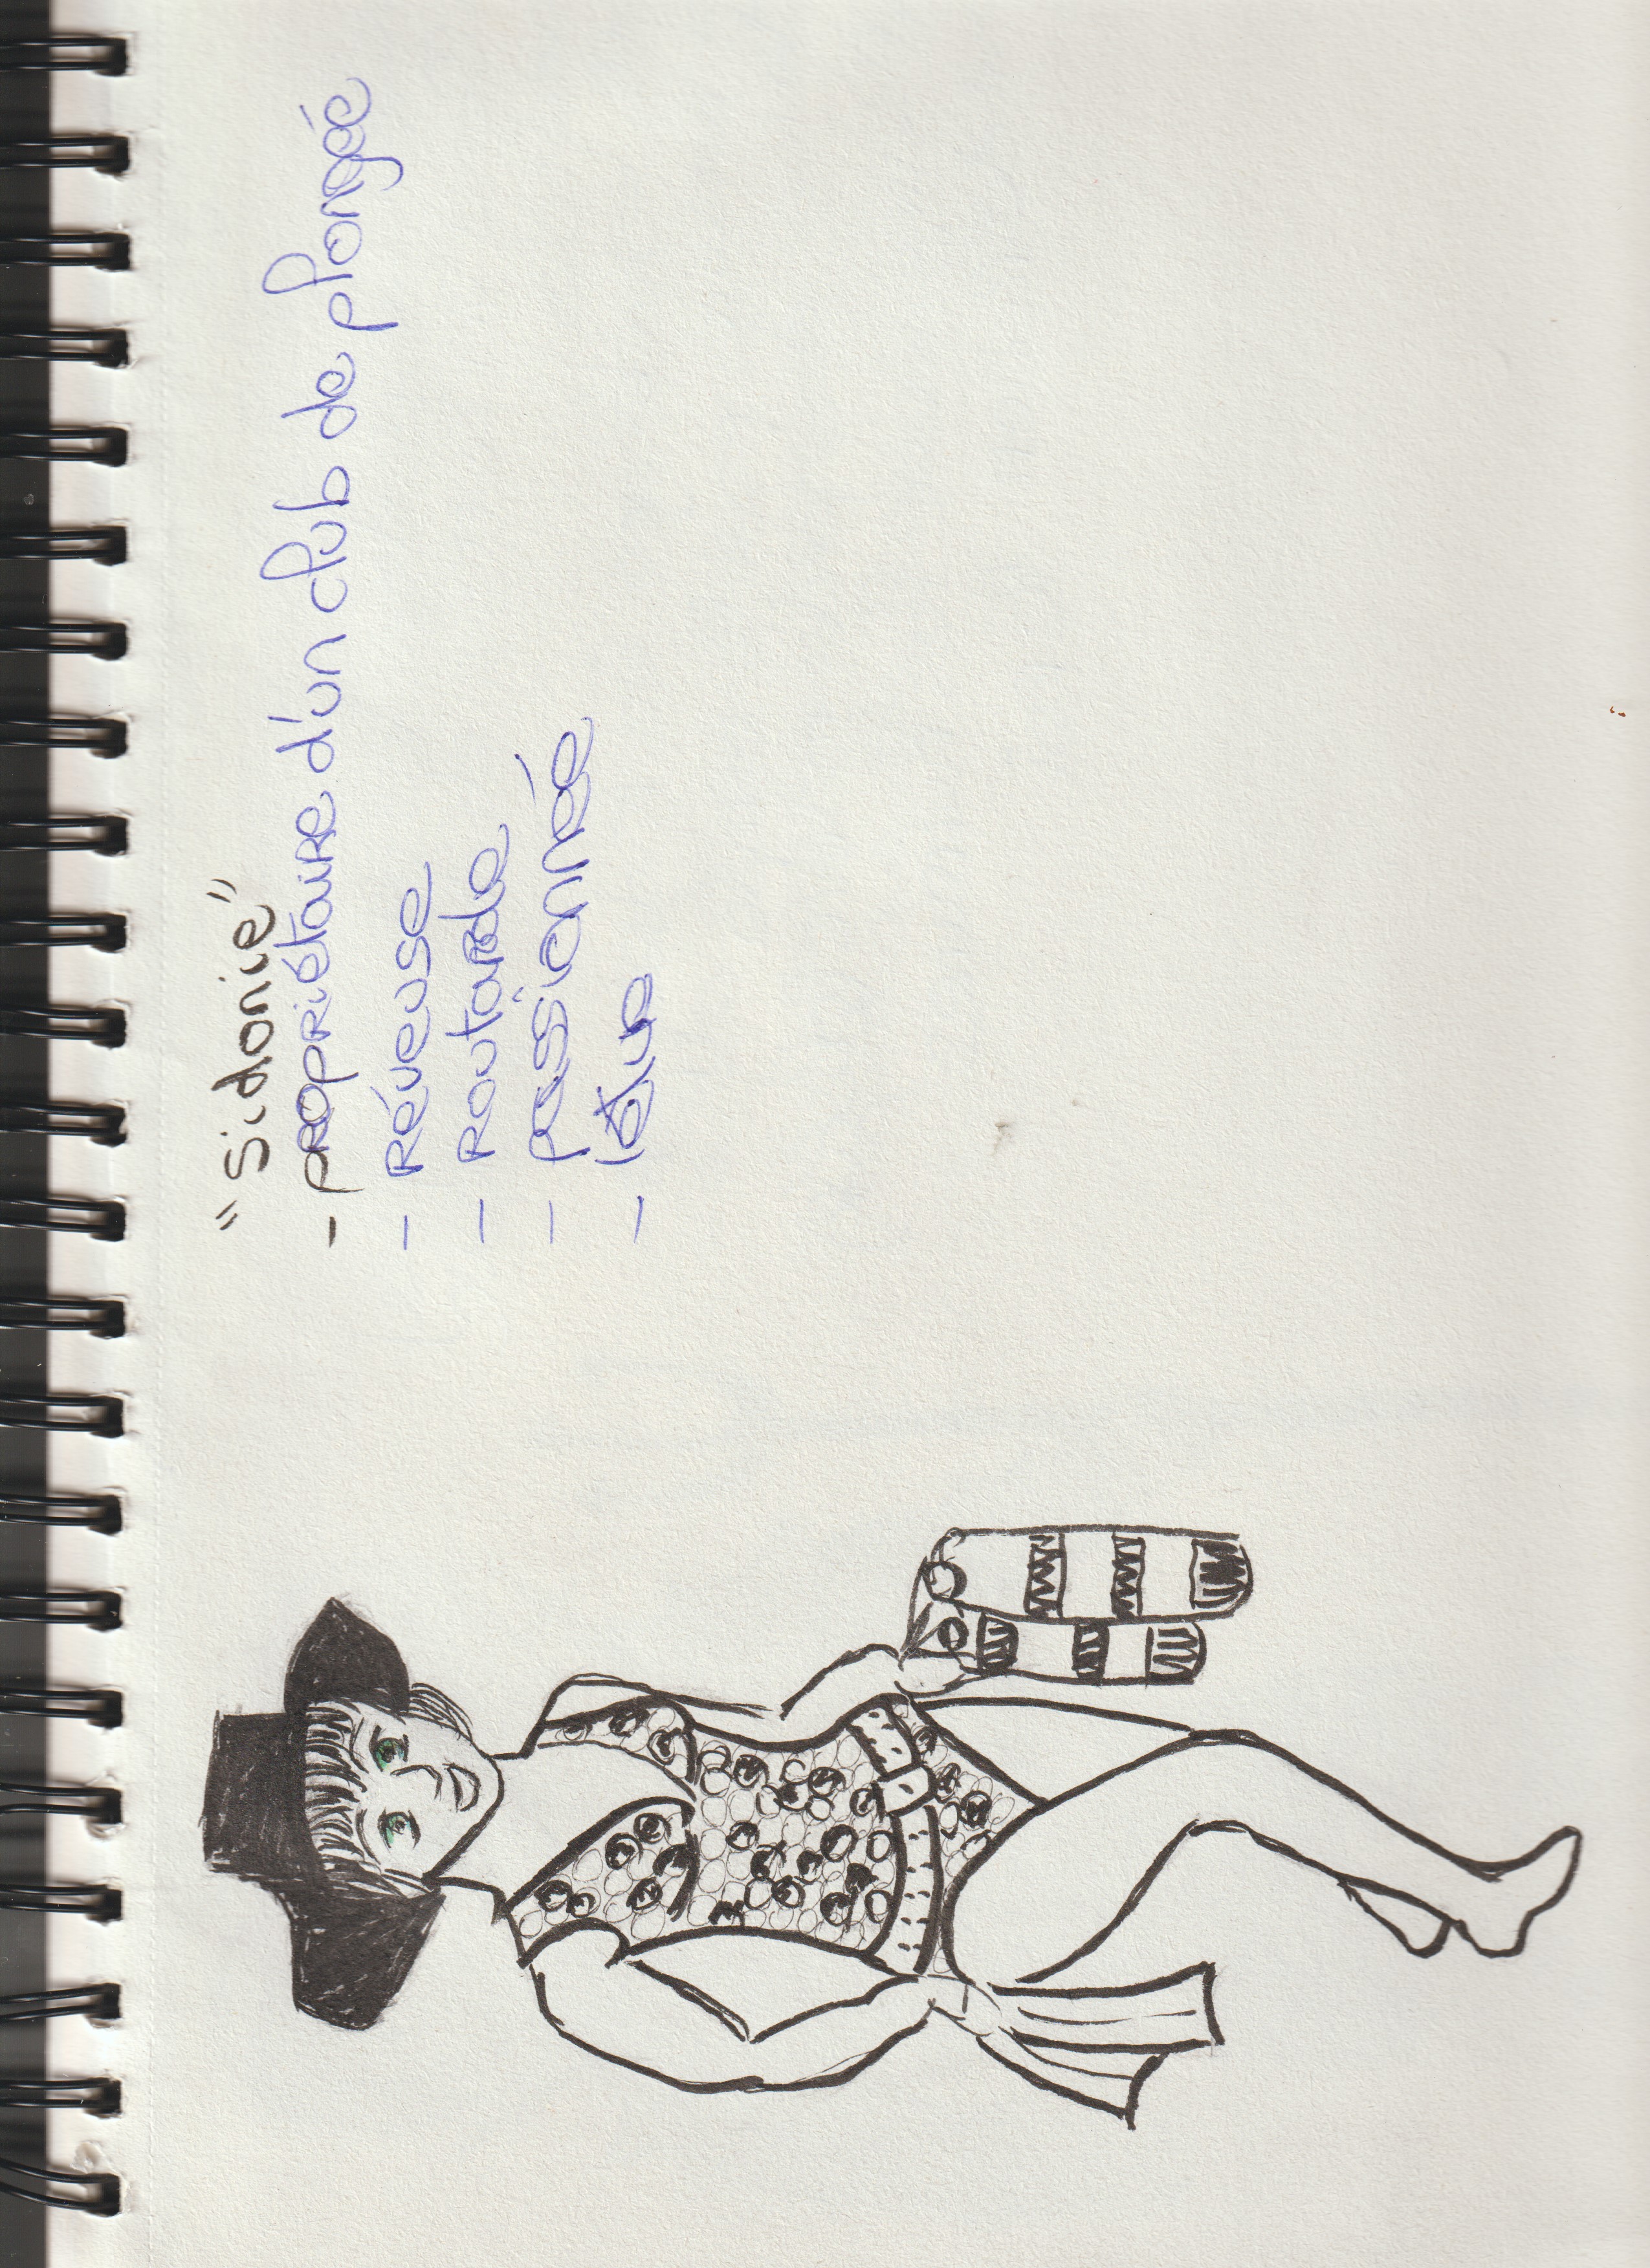 "Sidonie"
- propriétaire d'un club de plongée
- Réveuse
- Routarde
- passionnée
-